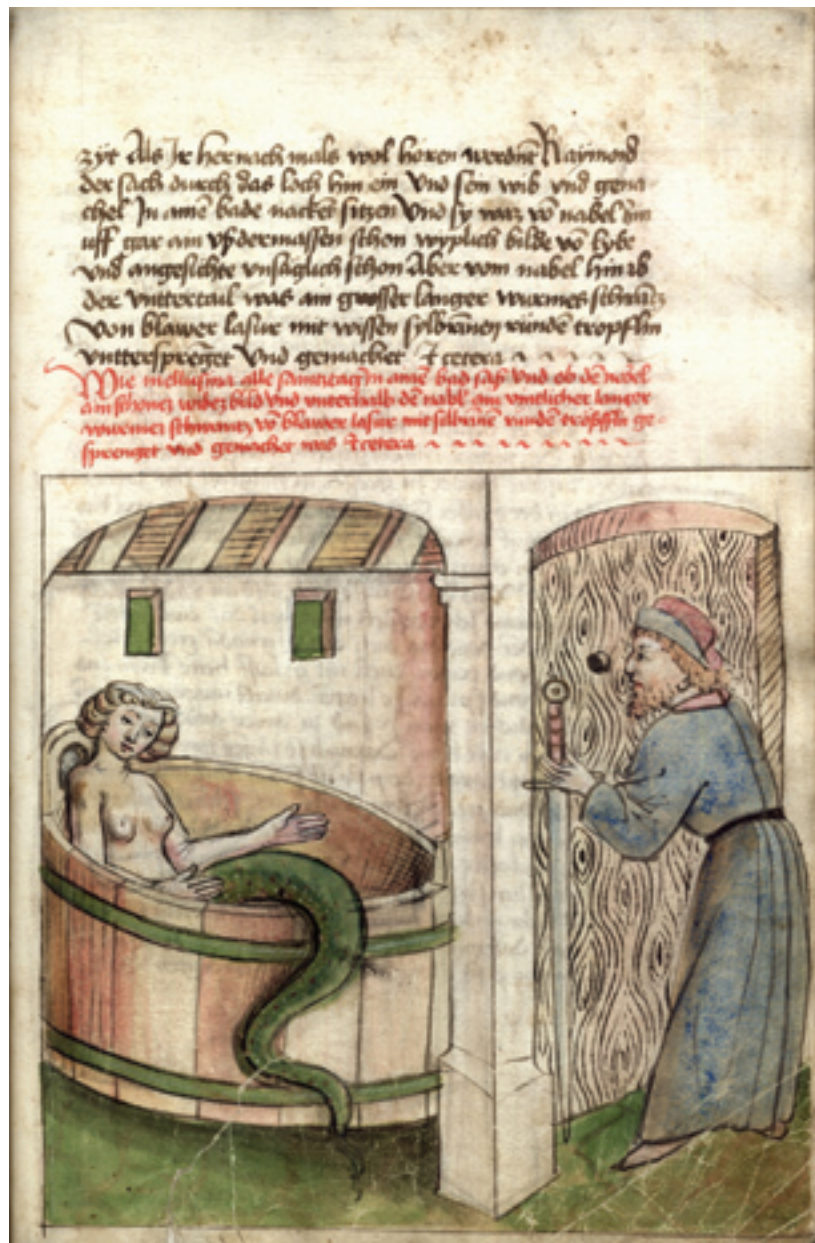 zyt Als Ir her nach mals wol hören werdent Raymond
der sach durch das loch hin ein Vnd sein wib vnd gema-
chel In ainē bade nacket sitzen Vnd sy waz võ nabel hin
uff gar ain vß dermassen schön wyplich bilde võ lybe
vnd angesichte vnsaglich schön Aber vom nabel hin ab
der vnttertail was ain grosser langer wurmes schwantz
Von blawer lasur mit wissen sylbrinen rundē tropflin
vnttersprēget Vnd gemachet Et cetera
Wie mellusina alle samtztag in ainē bad saß Vnd ob dē nabel
ain schönes wibes bild vnd vnterhalb dē nabl ain langer
wurmes schwantz võ blawer lasur mit silbrinē runden tröpflin ge-
sprenget vnd gemachet was Et cetera